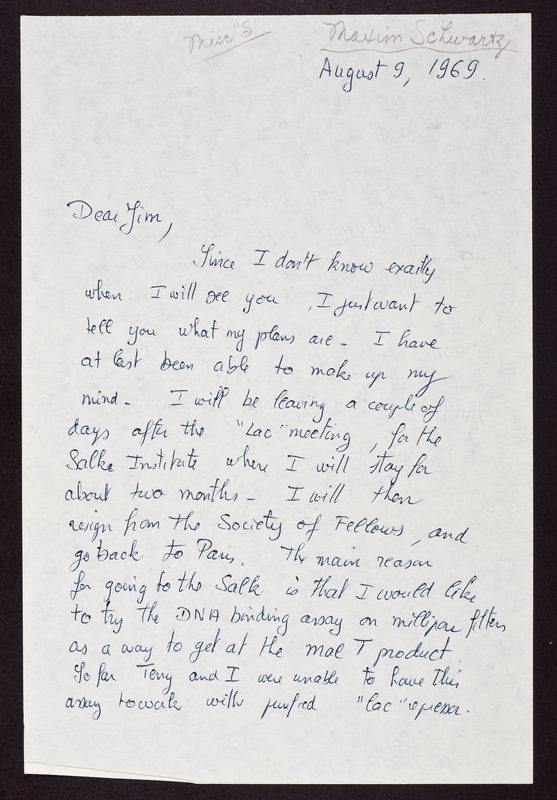 Misc "S"
Maxim Schwartz
August 9, 1969.
Dear Jim,
Since I don't know exactly
when I will see you, I just want to
tell you what my plans are - I have
at last been able to make up my
mind - I will be leaving a couple of
days after the "Lac" meeting, for the
Salk Institute where I will stay for
about two months - I will then
resign from the Society of Fellows, and
go back to Paris. The main reason
for going to the Salk is that I would like
to try the DNA binding assay on millipore filters
as a way to get at the mal T product.
So far Terry and I were unable to have this
assay to work with purified "lac" repressor.